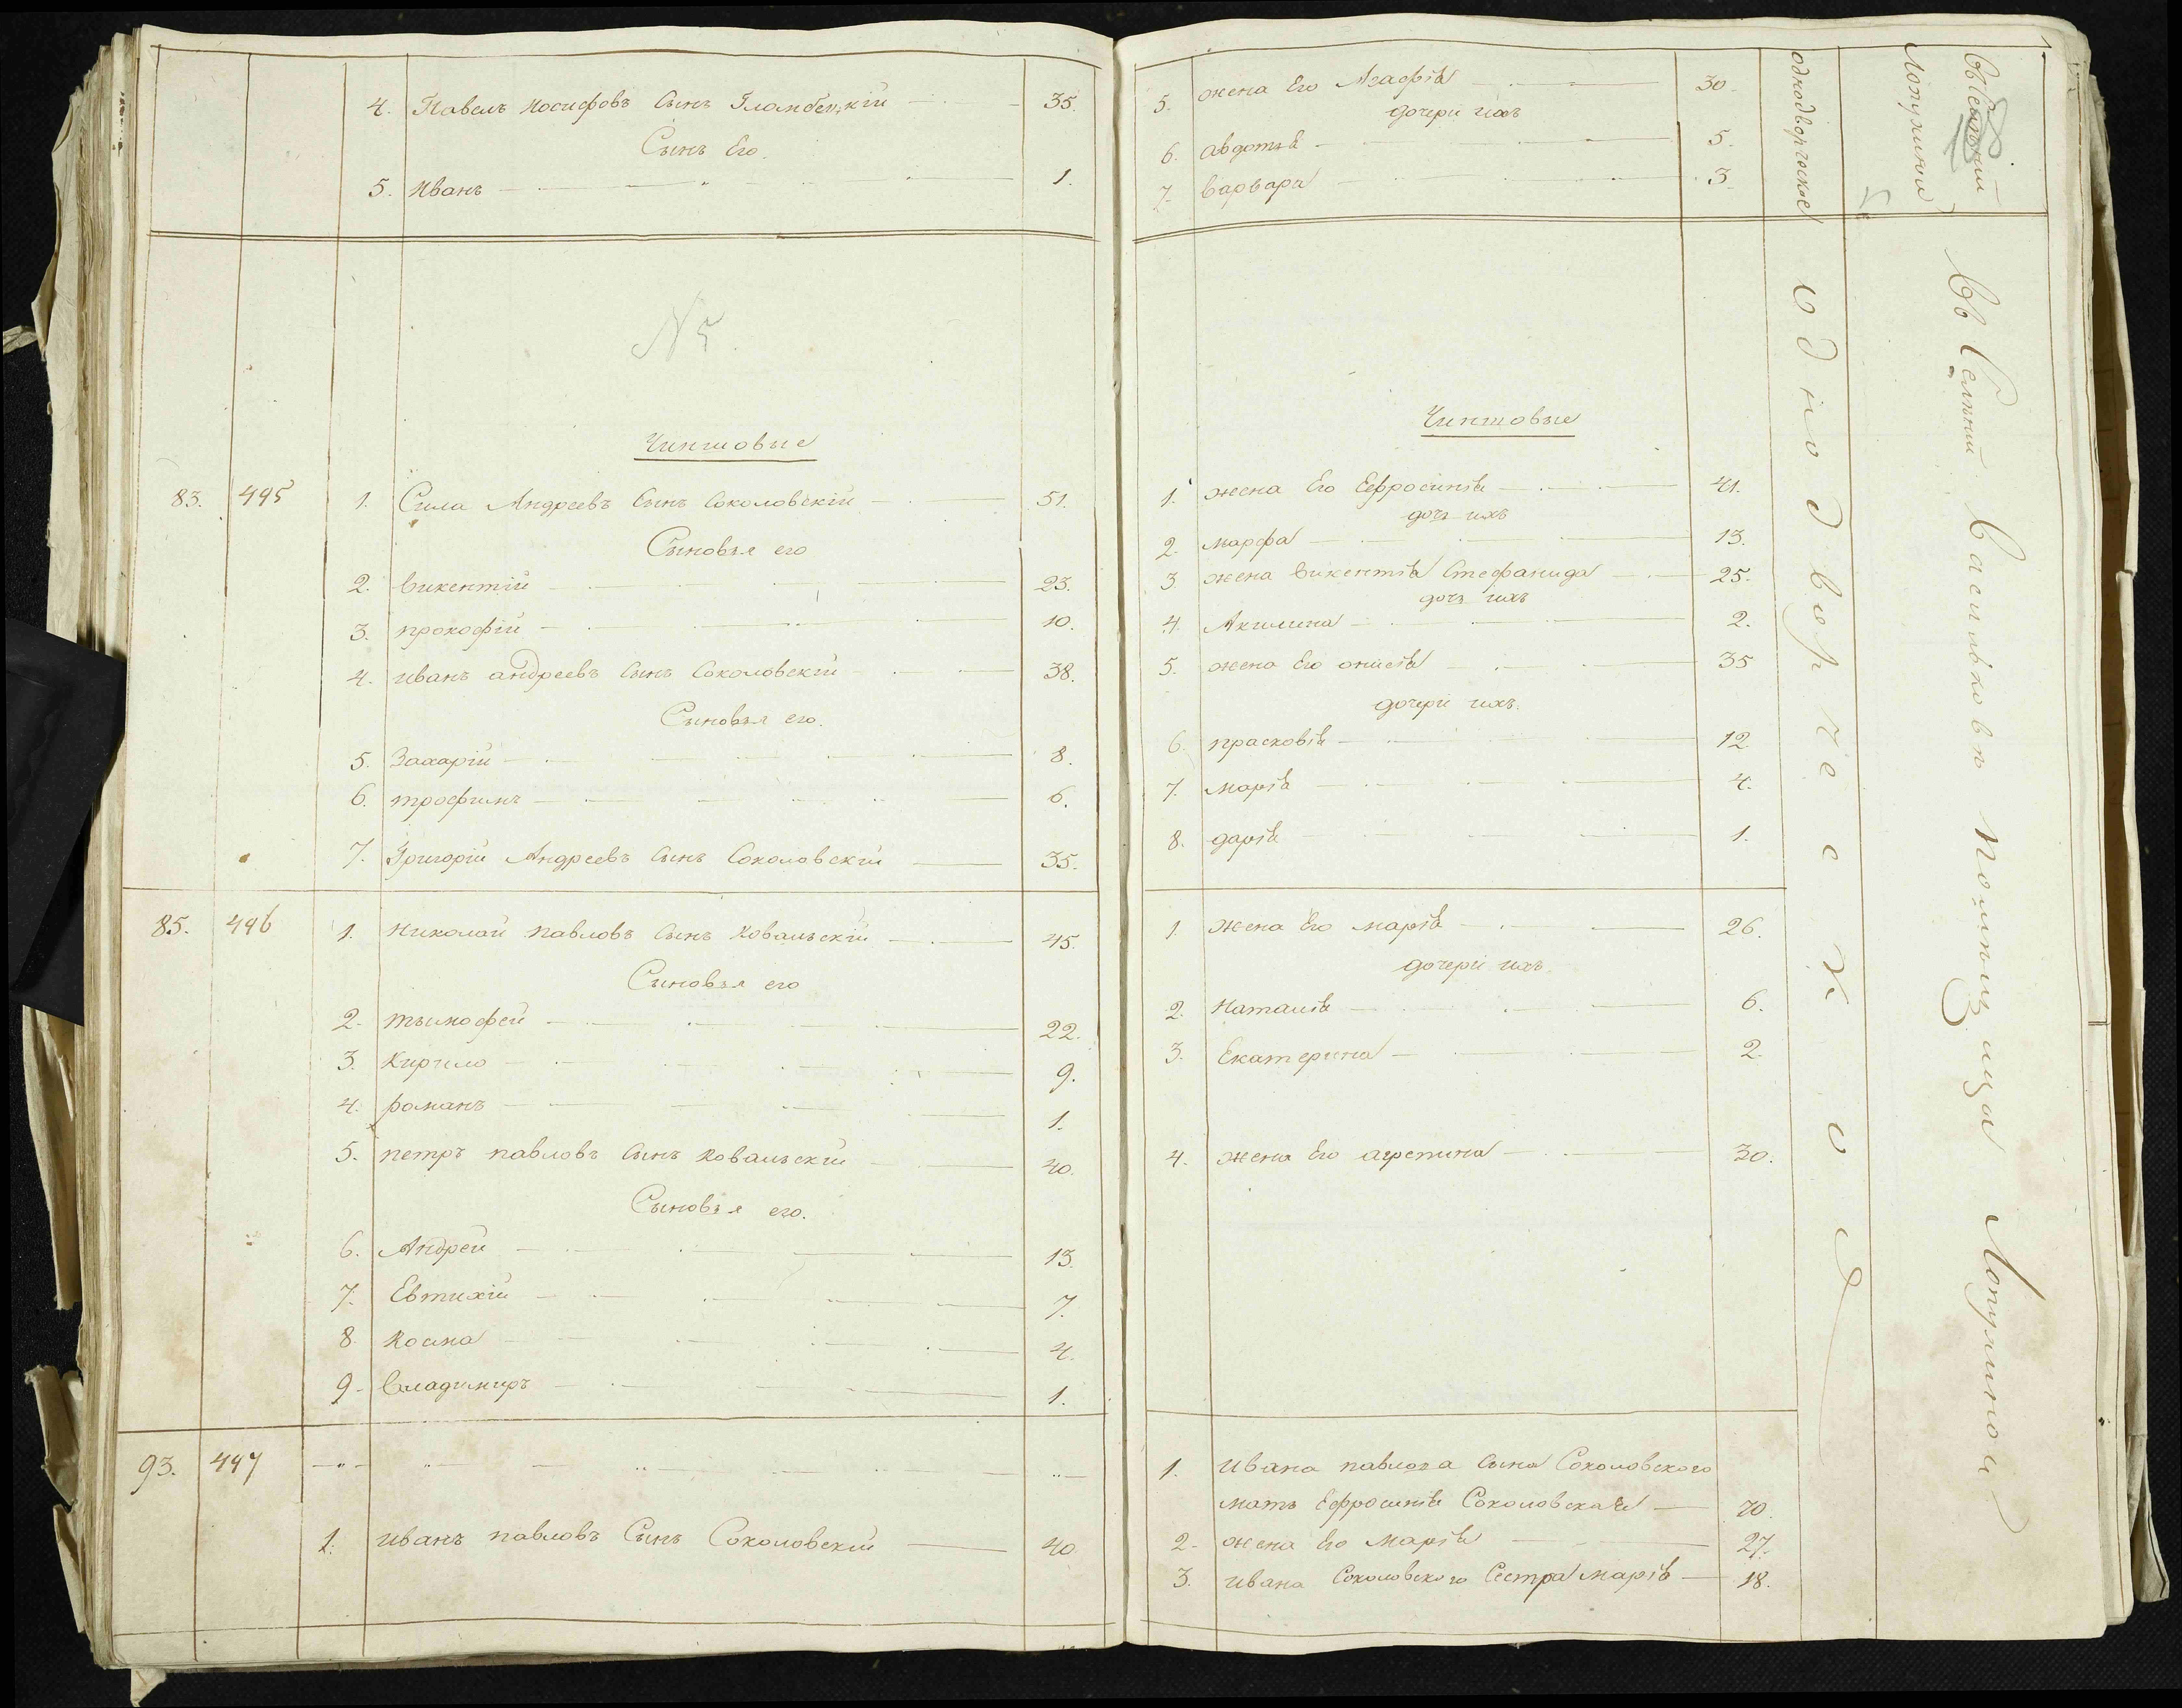 4. Павелъ Иосифовъ Сынъ 35.
Сынъ Его.
5. Иванъ 1.
N 5.
Чиншовые
83. 495 1. Сила Андреевъ Сынъ Соколовскій 51.
Сыновья его
2. Викентій 23.
3. прокофій 10.
4. иванъ андреевъ Сынъ Соколовскій 38.
Сыновья его.
5. Захарій 8.
6. трофимъ 6.
7. Григорій Андреевъ Сынъ Соколовскій 35.
85. 496 1. Николай Павловъ Сынъ Ковальскій 45.
Сыновья его
2. тымофей 22.
3. Кирило 9.
4. романъ 1.
5. петръ павловъ Сынъ Ковальскій 40.
Сыновья его.
6. Андрей 13.
7. Евтихій 7.
8. Козма 4.
9. Владимиръ 1.
93. 497
1. иванъ павловъ Сынъ Соколовскій 40.
5. жена Его Агафія 30.
дочери ихъ
6. Авдотья 5.
7. Варвара 3.
Чиншовые
1. жена Его Ефросинія 41.
дочь ихъ
2. марфа 13.
3. жена Викентія Стефанида 25.
дочь ихъ
4. Акилина 2.
5. жена Его онисія 35
дочери ихъ.
6. прасковія 12
7. марія 4.
8. дарія 1.
1. жена Его марія 26.
дочери ихъ.
2. Наталія 6.
3. Екатерина 2.
4. жена Его агрепина 30.
1. Ивана павлова Сына Соколовского
мать Ефросинія Соколовская 70.
2. жена Его Марія 27.
3. ивана Соколовского Сестра марія 18.
однодворческое
однодворческое
Лопухиной
въ Селеніи Васильковъ помѣщица Лопухиной